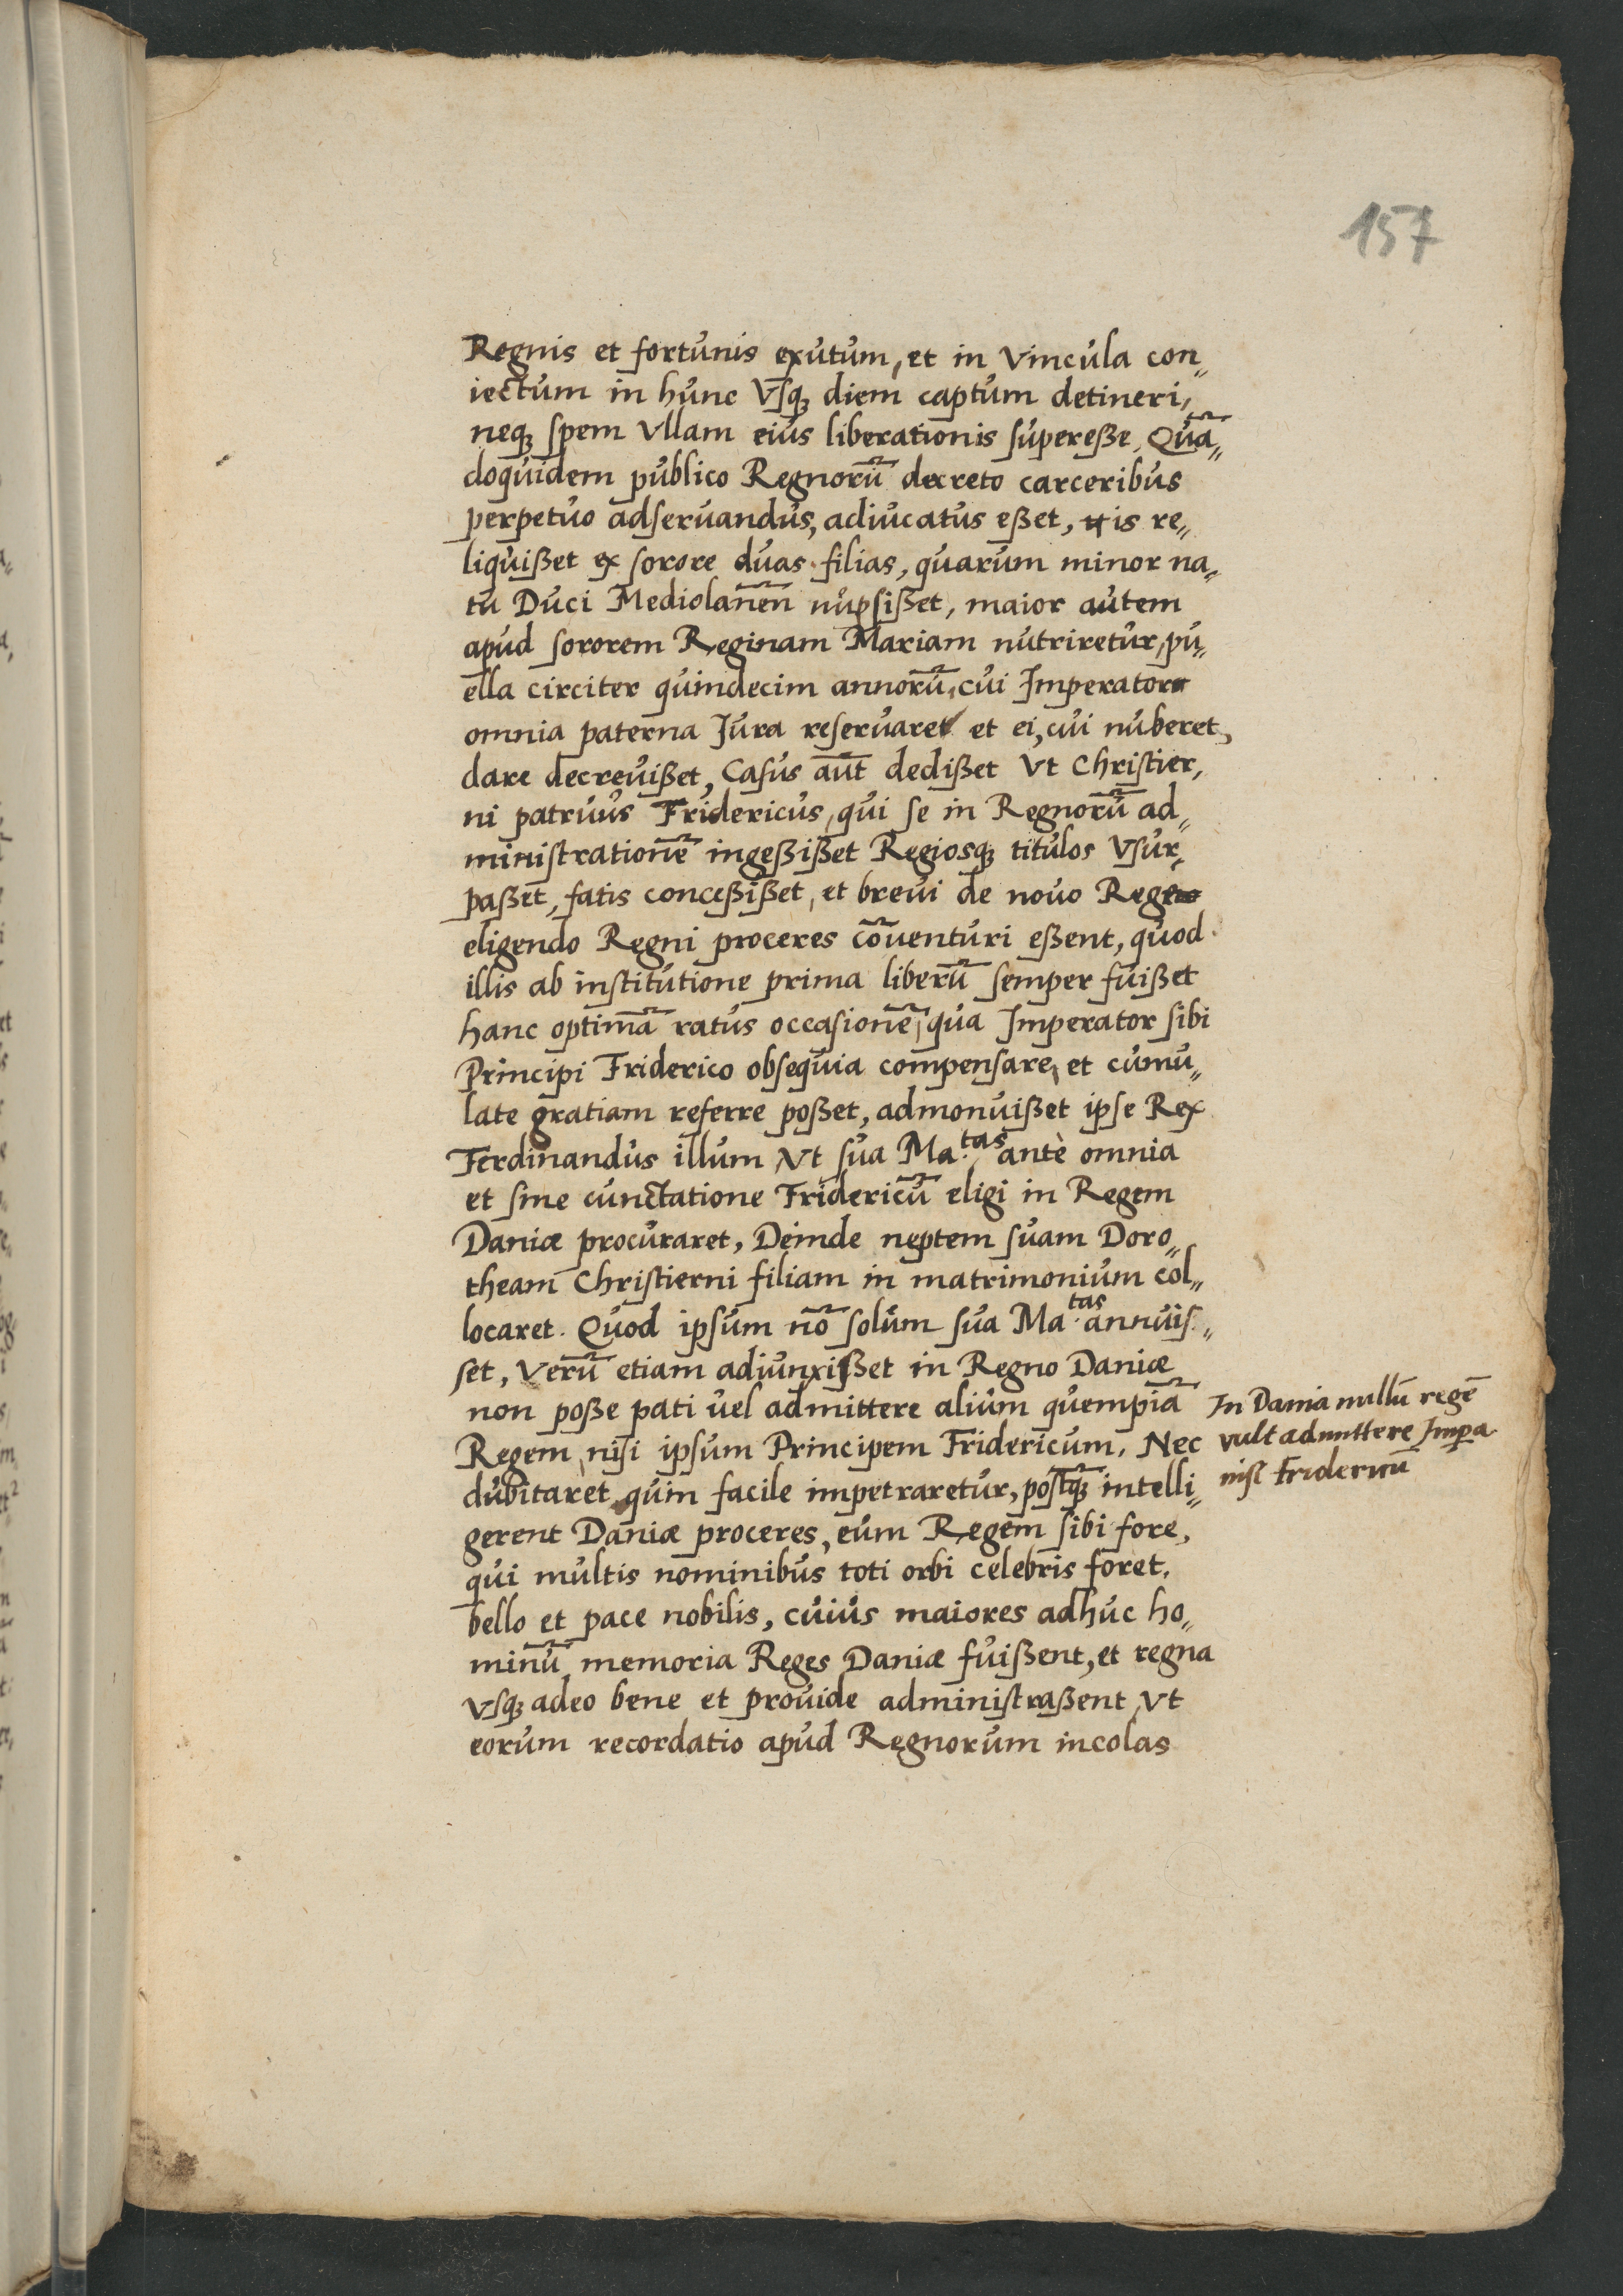 157
Regnis et fortunis exutum, et in vincula con„
iectum in hunc vsq; diem captum detineri,
neq; spem vllam eius liberationis superesse, Quā„
doquidem publico Regnorū decreto carceribus
perpetuo adseruandus, adiucatus esset, is re„
liquisset ex sorore duas filias, quarum minor na„
tu Duci Mediolanēn nupsisset, maior autem
apud sororem Reginam Mariam nutriretur, pu„
ella circiter quindecim annorū, cui Imperator
omnia paterna Jura reseruaret et ei, cui nuberet,
dare decreuisset, Casus aūt dedisset Vt Christier,
ni patruus Fridericus, qui se in Regnorū ad„
ministrationē ingessisset Regiosq; titulos vsur„
passet, fatis concessisset, et breui de nouo Rege
eligendo Regni proceres cōuenturi essent, quod
illis ab institutione prima liberū semper fuisset
hanc optimā ratus occasionē, qua Imperator sibi
Principi Friderico obsequia compensare, et cumu„
late gratiam referre posset, admonuisset ipse Rex
Ferdinandus illum, Vt sua Ma.tas antè omnia
et sine cunctatione Fridericū eligi in Regem
Daniæ procuraret, Deinde neptem suam Doro„
theam Christierni filiam in matrimonium col„
locaret. Quod ipsum nō solum sua Ma.tas annuis„
set, Verū etiam adiunxisset in Regno Daniæ
non posse pati uel admittere alium quempiā
Regem, nisi ipsum Principem Fridericum, Nec
dubitaret quin facile impetraretur, postq̄; intelli„
gerent Daniæ proceres, eum Regem sibi fore,
qui multis nominibus toti orbi celebris foret,
bello et pace nobilis, cuius maiores adhuc ho„
minū memoria Reges Daniæ fuissent, et regna
vsq; adeo bene et prouide administrassent, Vt
eorum recordatio apud Regnorum incolas
In Dania nullū regē
vult admittere Impa
nisi Fridericū